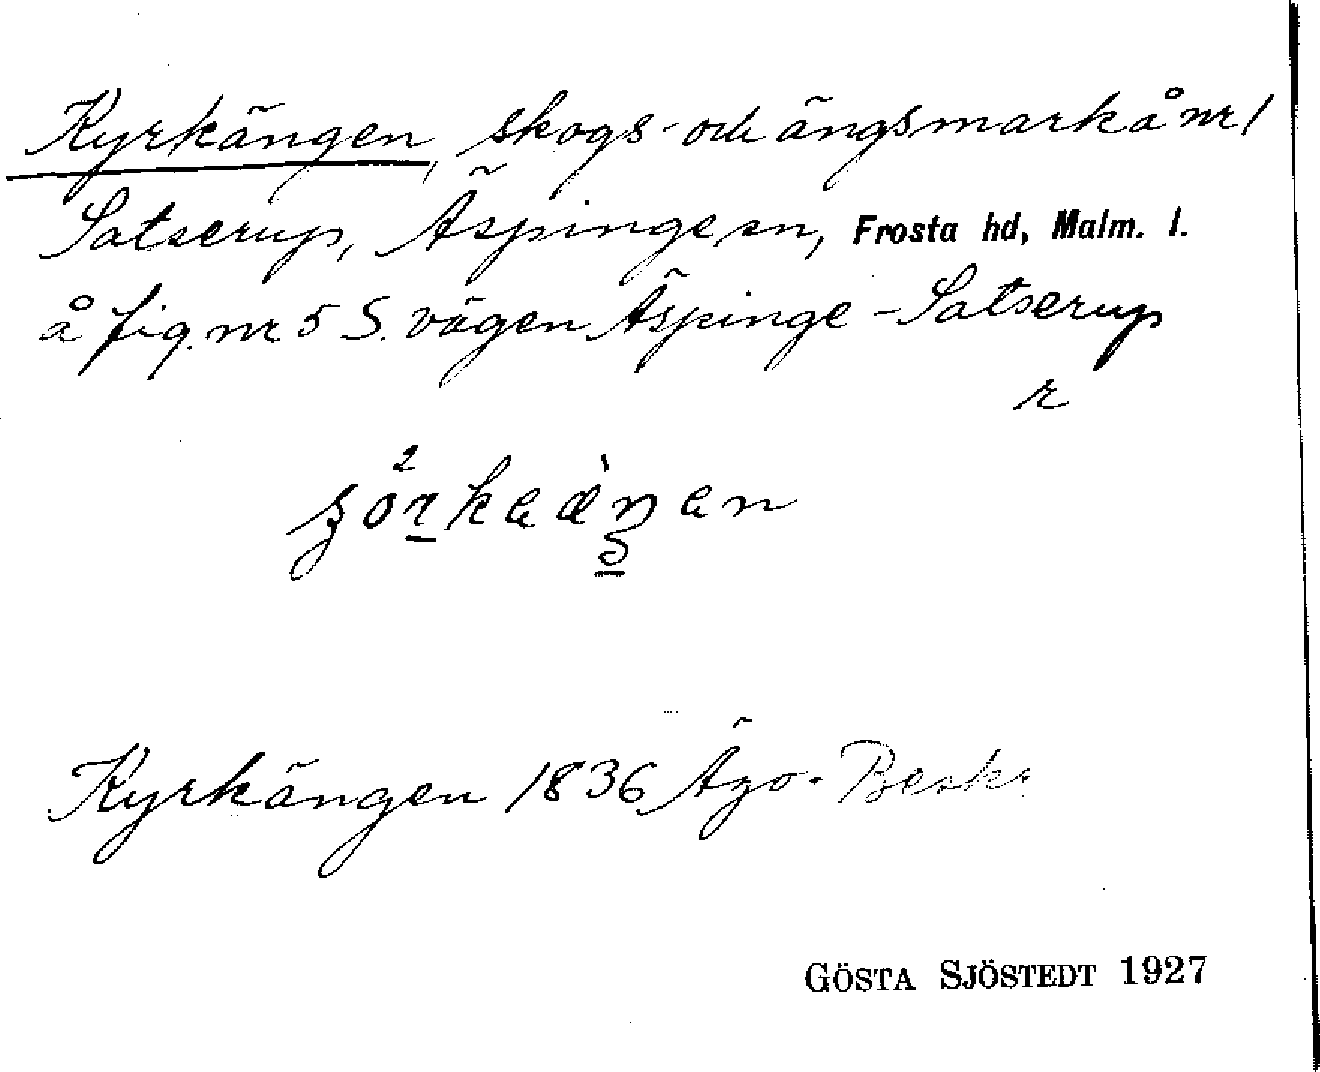 Kyrkängen, skogs- och ängsmark å nr 1
Satserup, Äspinge sn, Frosta hd, Malm. l.
å fig. nr 5 S. vägen Äspinge - Satserup
r
Kyrkängen 1836 Ägo-Beskr
GÖSTA SJÖSTEDT 1927